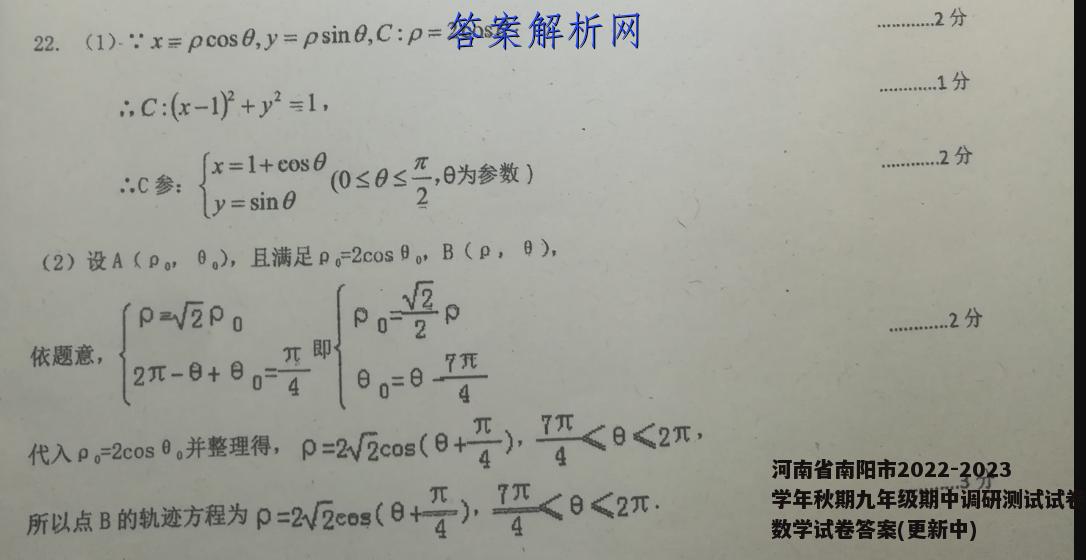 22. (1) ∵ x=ρcosθ, y=ρsinθ, C:ρ=2cosθ …………2分
答案解析网
∴C:(x-1)²+y²=1, …………1分
∴C参: {x=1+cosθ y=sinθ (0≤θ≤π/2,θ为参数) …………2分
(2)设A(ρ₀, θ₀), 且满足ρ₀=2cosθ₀, B(ρ, θ),
依题意, {ρ=√2ρ₀ 2π-θ+θ₀=π/4 即{ρ₀=√2/2ρ θ₀=θ-7π/4 …………2分
代入ρ₀=2cosθ₀并整理得, ρ=2√2cos(θ+π/4), 7π/4<θ<2π,
所以点B的轨迹方程为ρ=2√2cos(θ+π/4), 7π/4<θ<2π. …………3分
河南省南阳市2022-2023
学年秋期九年级期中调研测试试卷
数学试卷答案(更新中)